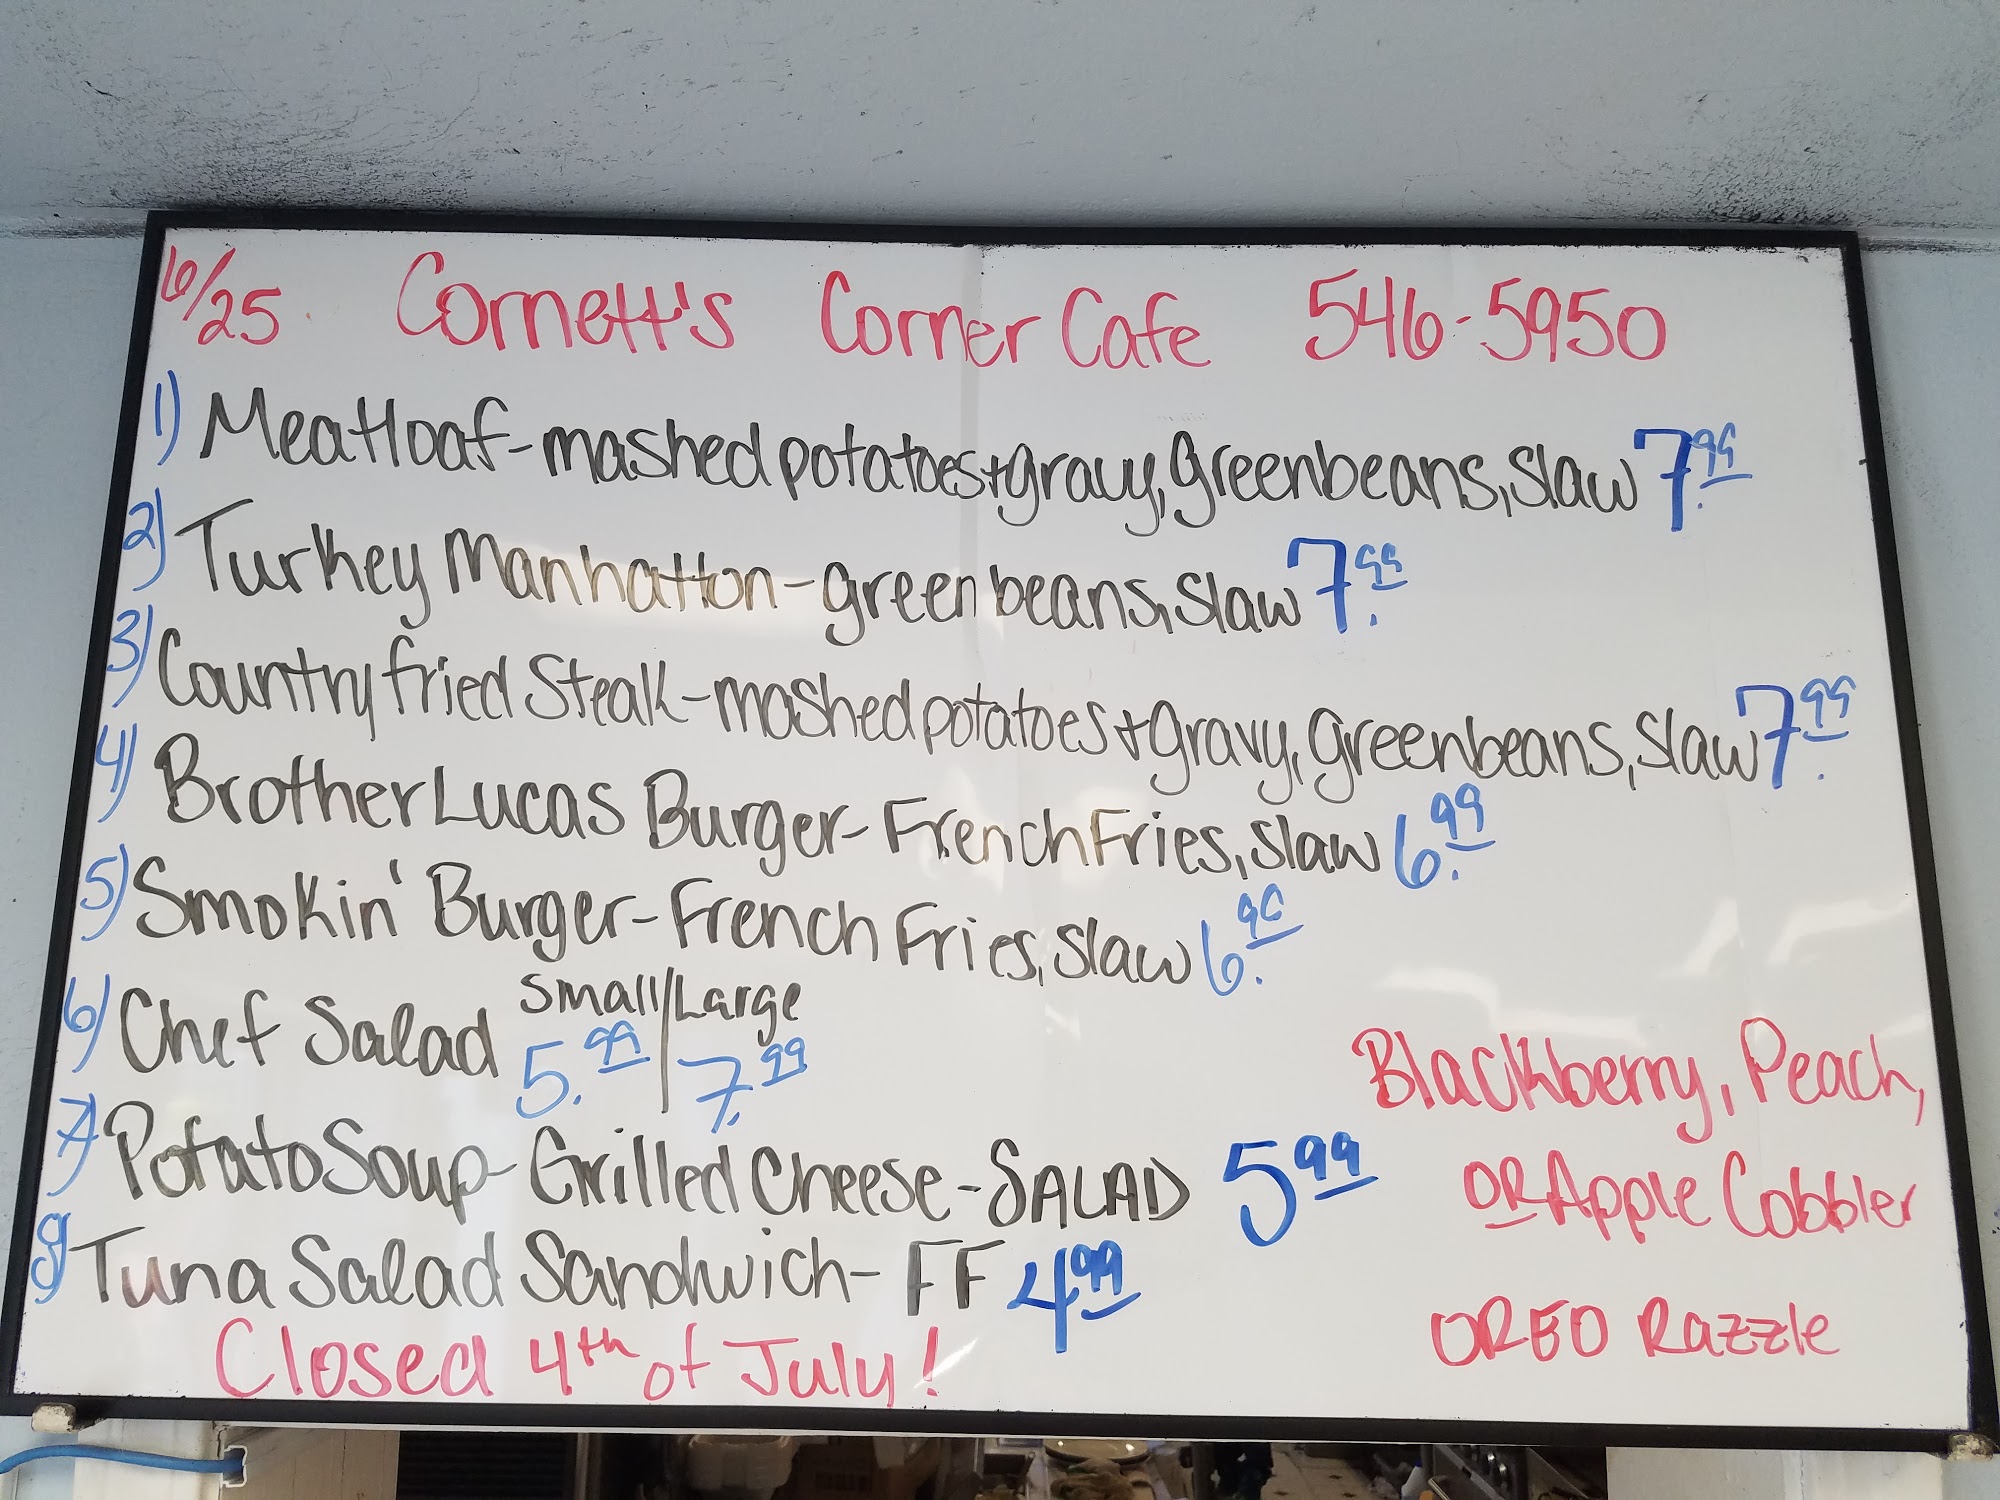 6/25 Cornett's Corner Cafe 546-5950
1) Meatloaf-mashed potatoes+gravy, greenbeans, slaw 7.99
2) Turkey Manhatton-greenbeans, slaw 7.99
3) Country fried Steak-mashed potatoes+gravy, greenbeans, slaw 7.99
4) Brother Lucas Burger-French Fries, slaw 6.99
5) Smokin' Burger-French Fries, slaw 6.99
6) Chef Salad Small/Large
5.99/7.99
Blackberry, Peach,
7) Potato Soup-Grilled Cheese-SALAD 5 99
OR Apple Cobbler
8) Tuna Salad Sandwich-FF 4 99
OREO Razzle
Closed 4th of July!